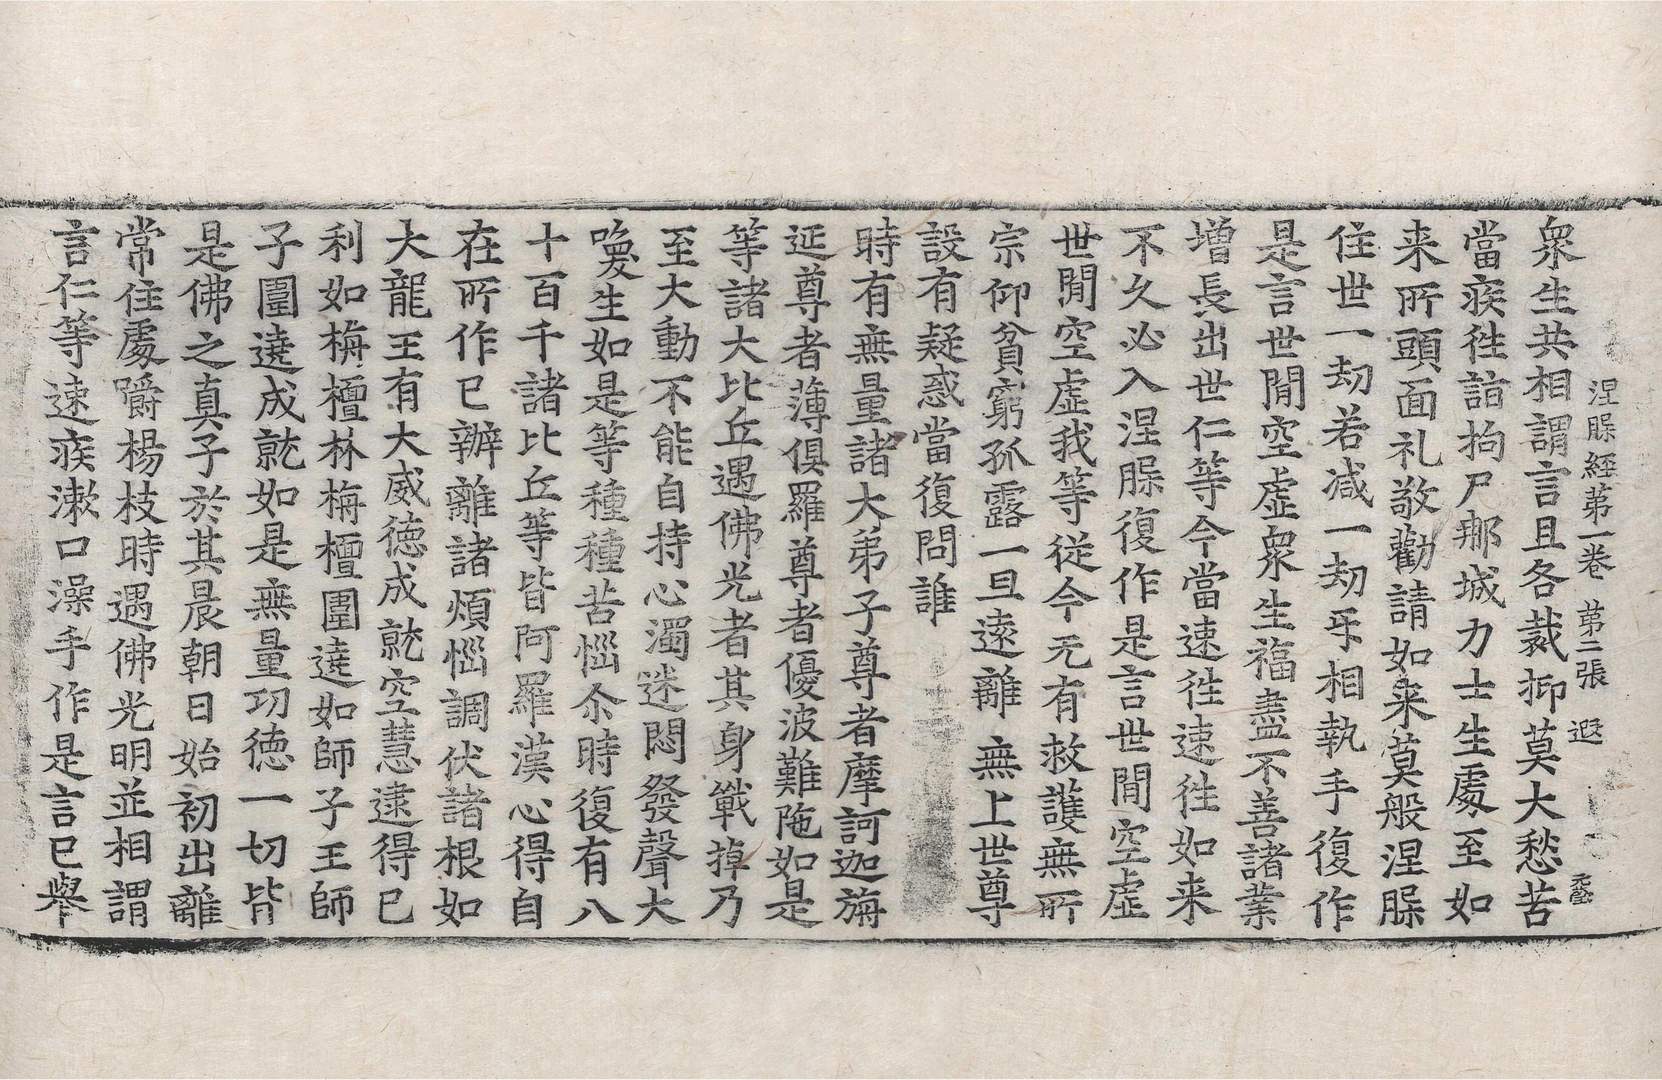 涅脲經第一卷 第二張 遐
衆生共相謂言且各裁抑莫大愁苦
當疾往詣拘尸那城力士生處至如
来所頭面礼敬勸請如来莫般涅脲
住世一劫若減一劫牙相執手復作
是言世閒空虛衆生福盡不善諸業
增長出世仁等今當速往速往如来
不久必入涅脲復作是言世閒空虛
世閒空虛我等従今无有救護無所
宗仰貧窮孤露一旦遠離無上世尊
設有疑惑當復問誰
時有無量諸大弟子尊者摩訶迦旃
延尊者薄俱羅尊者優波難陁如是
等諸大比丘遇佛光者其身戰掉乃
至大動不能自持心濁迷悶發聲大
喚生如是等種種苦惱尒時復有八
十百千諸比丘等皆阿羅漢心得自
在所作已辦離諸煩惱調伏諸根如
大龍王有大威德成就空慧逮得已
利如栴檀林栴檀圍遶如師子王師
子圍遶成就如是無量功德一切皆
是佛之真子於其晨朝日始初出離
常住處嚼楊枝時遇佛光明並相謂
言仁等速疾漱口澡手作是言已舉